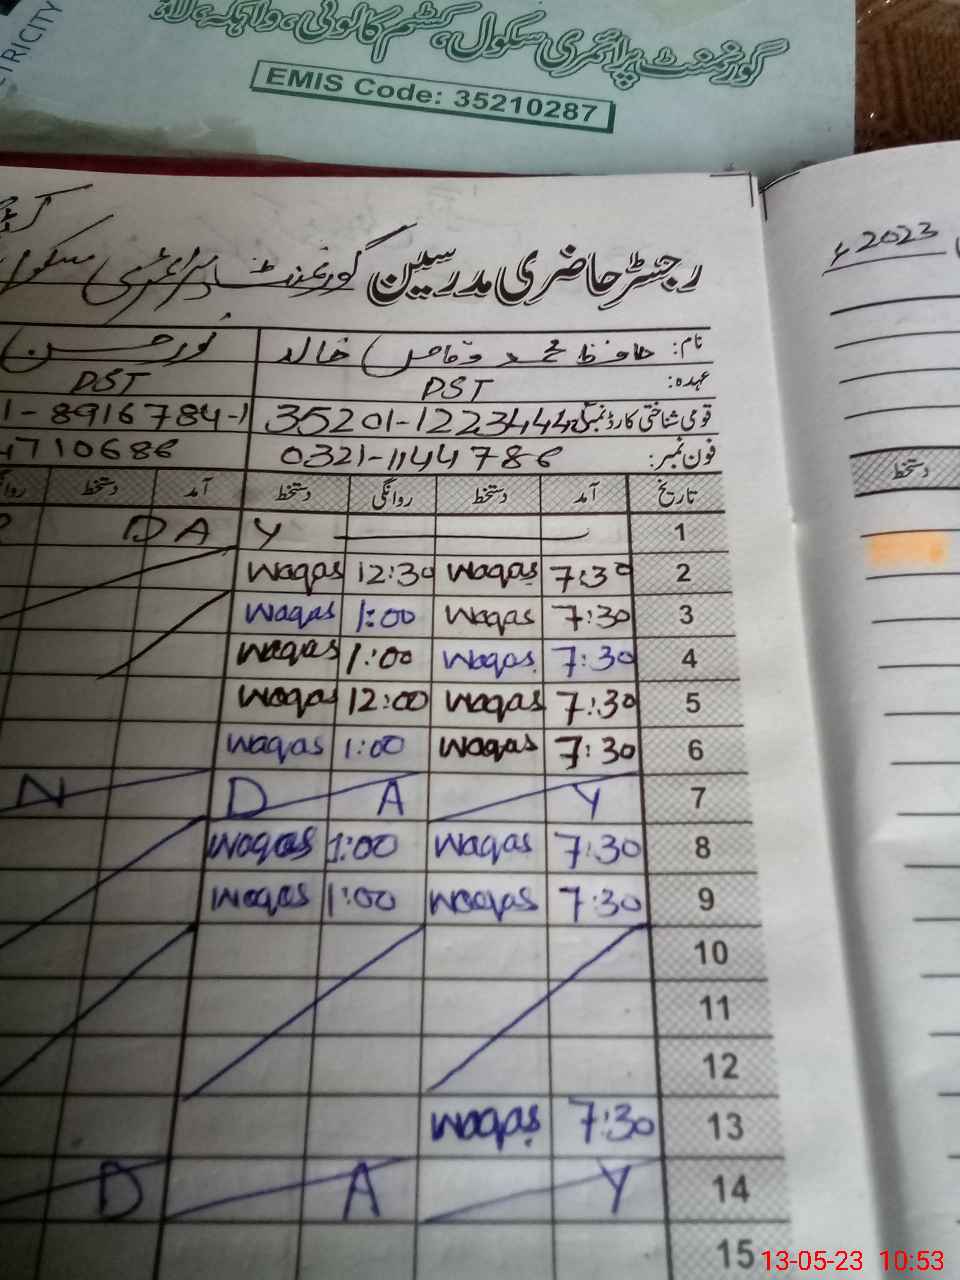 TRICITY
گورنمنٹ پرائمری سکول، کسٹم کالونی، واہگہ، لا
EMIS Code: 35210287
رجسٹر حاضری مدرسین گورنمنٹ پرائمری سکول
2023ء
نام: حافظ محمد وقاص خالد نور حسن
عہدہ: PST PST
قومی شناختی کارڈ نمبر: 35201-1223444 1-8916784-1
فون نمبر: 0321-1144786 4710686
تاریخ آمد دستخط روانگی دستخط آمد دستخط روانگی دستخط
1 D A Y
2 7:30 Waqas 12:30 Waqas
3 7:30 Waqas 1:00 Waqas
4 7:30 Waqas 1:00 Waqas
5 7:30 Waqas 12:00 Waqas
6 7:30 Waqas 1:00 Waqas
7 N D A Y
8 7:30 Waqas 1:00 Waqas
9 7:30 Waqas 1:00 Waqas
10
11
12
13 7:30 Waqas
14 D A Y
15
13-05-23 10:53